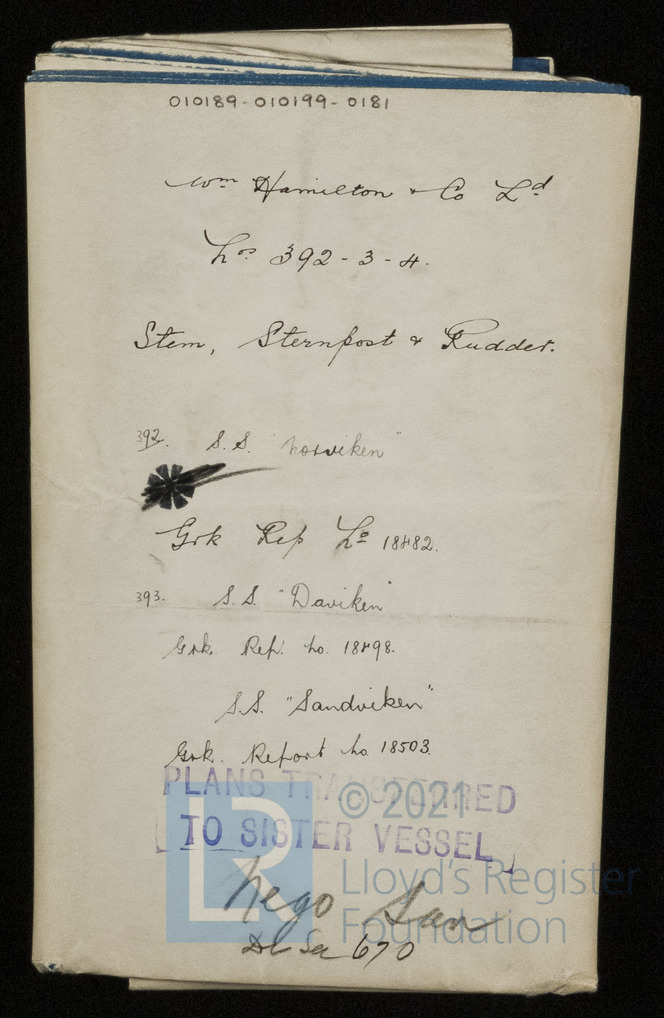 010189-010199-0181
Wm Hamilton & Co Ld
Nos 392-3-4.
Stem, Sternpost & Rudder.
392. S.S. "Norviken"
Grk Rep No 18482.
393. S.S. "Daviken"
Grk. Rep. No. 18498.
S.S. "Sandviken"
Grk. Report No 18503.
PLANS TRANSFERRED
TO SISTER VESSEL
© 2021
LR
Lloyd's Register
Foundation
670